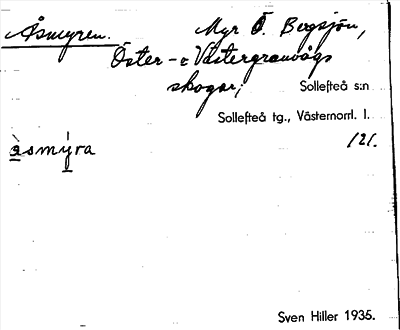 Åsmyren. Myr Ö. Bergsjön,
Öster- o Västergranvågs
skogar; Sollefteå s:n
Sollefteå tg., Västernorrl. l.
121.
àsmýra
Sven Hiller 1935.